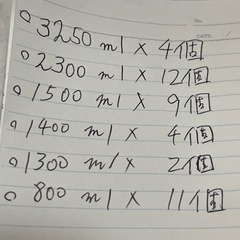 No.
DATE
○3250ml×4個
○2300ml×12個
○1500ml×9個
○1400ml×4個
○1300ml×2個
○800ml×11個